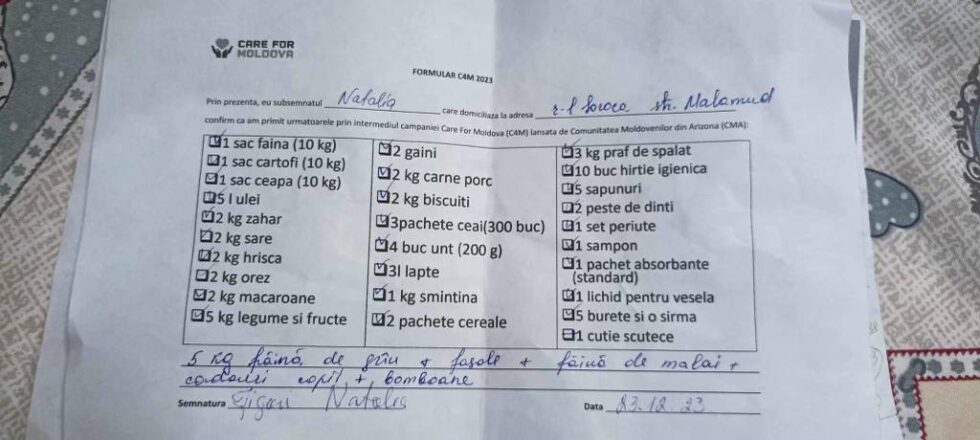 CARE FOR
MOLDOVA
FORMULAR C4M 2023
Prin prezenta, eu subsemnatul Natalia care domiciliaza la adresa r-l Soroca str. Malamud
confirm ca am primit urmatoarele prin intermediul campaniei Care For Moldova (C4M) lansata de Comunitatea Moldovenilor din Arizona (CMA):
1 sac faina (10 kg)
1 sac cartofi (10 kg)
1 sac ceapa (10 kg)
5 l ulei
2 kg zahar
2 kg sare
2 kg hrisca
2 kg orez
2 kg macaroane
5 kg legume si fructe
2 gaini
2 kg carne porc
2 kg biscuiti
3pachete ceai(300 buc)
4 buc unt (200 g)
3l lapte
1 kg smintina
2 pachete cereale
3 kg praf de spalat
10 buc hirtie igienica
5 sapunuri
2 peste de dinti
1 set periute
1 sampon
1 pachet absorbante
(standard)
1 lichid pentru vesela
5 burete si o sirma
1 cutie scutece
5 kg făină de grîu + fasole + făină de malai +
copil, + bomboane
Semnatura Natalia
Data 23.12.23